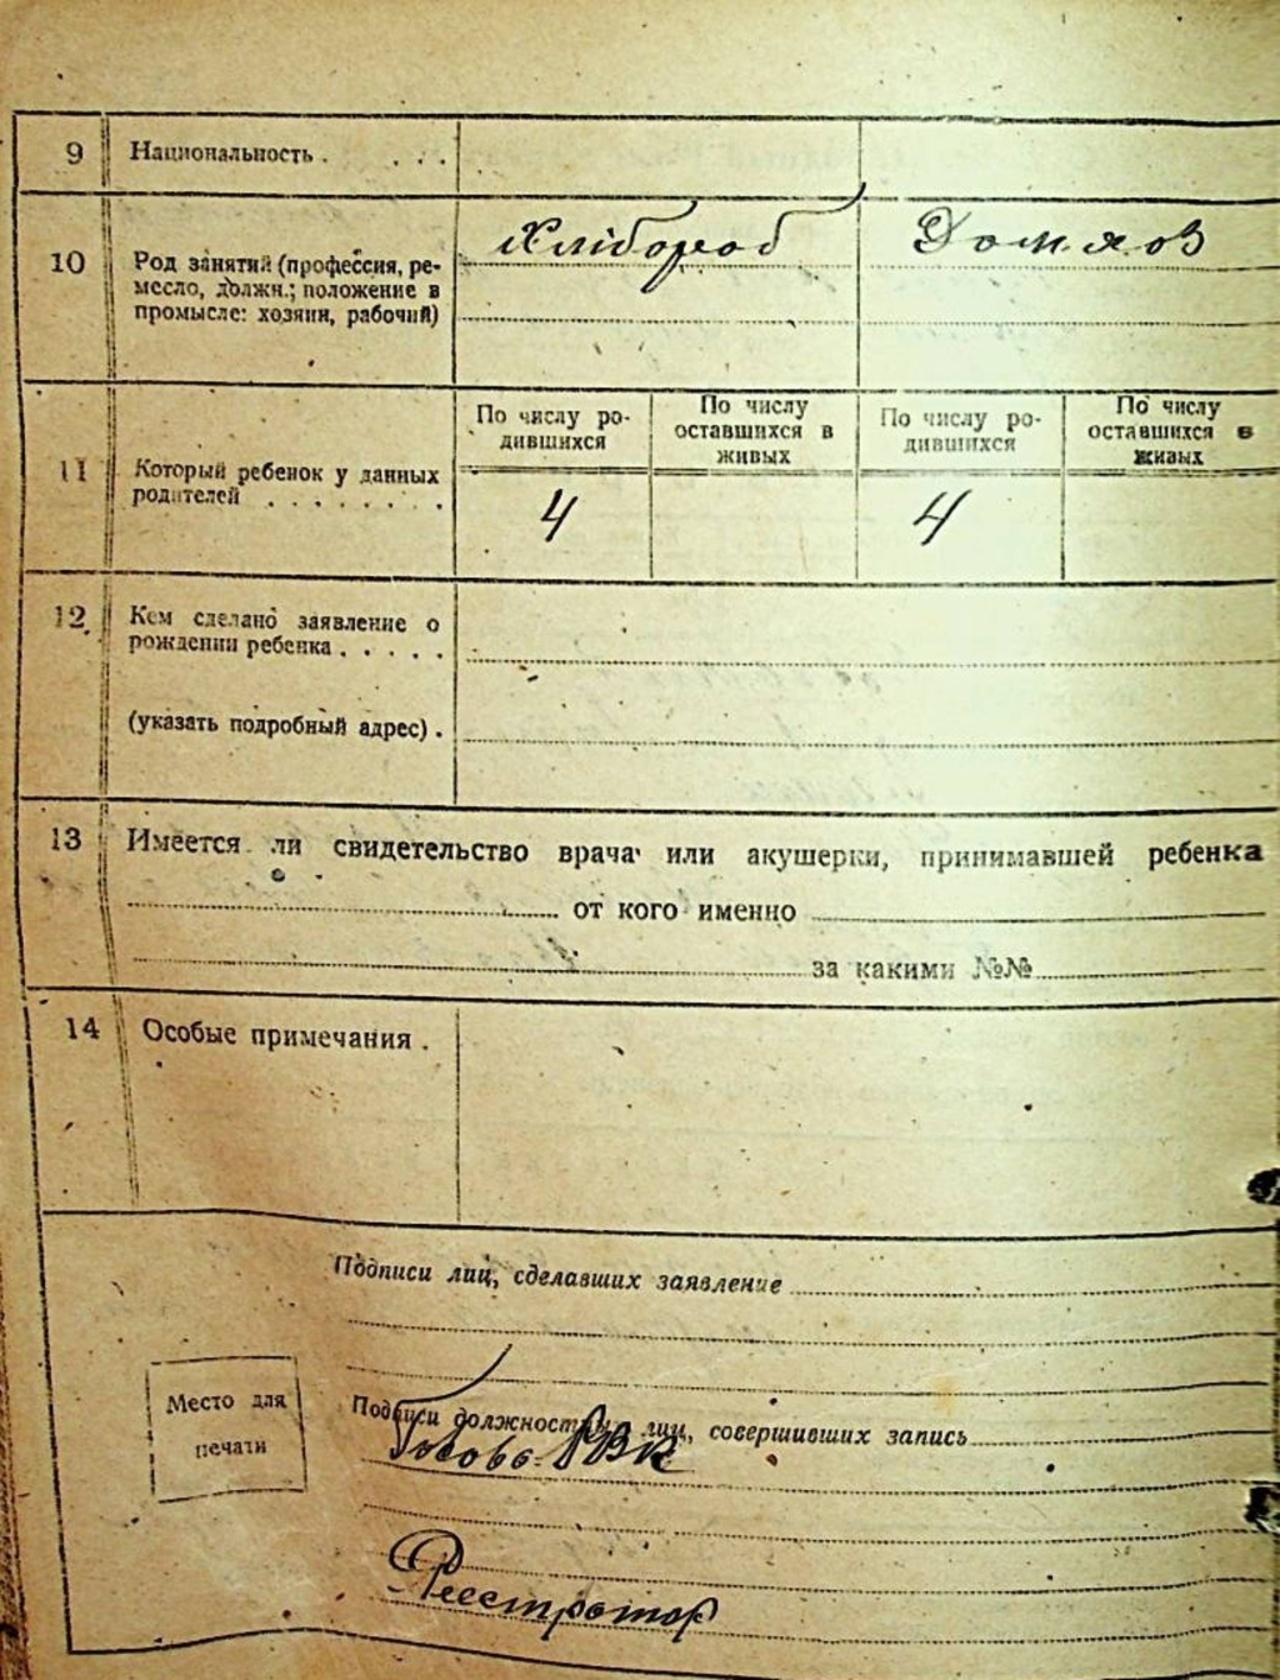 9 Национальность . . . .
10 Род занятий (профессия, ре-
месло, должн.; положение в
промысле: хозяин, рабочий)
Хлібороб Домхоз
11 Который ребенок у данных
родителей . . . . . . . .
По числу ро-
дившихся
По числу
оставшихся в
живых
По числу ро-
дившихся
По числу
оставшихся в
живых
4 4
12 Кем сделано заявление о
рождении ребенка . . . . .
(указать подробный адрес) .
13 Имеется ли свидетельство врача или акушерки, принимавшей ребенка
от кого именно
за какими №№
14 Особые примечания .
Подписи лиц, сделавших заявление
Место для
печати
Подписи должностных лиц, совершивших запись
Голова РВК
Реєстратор